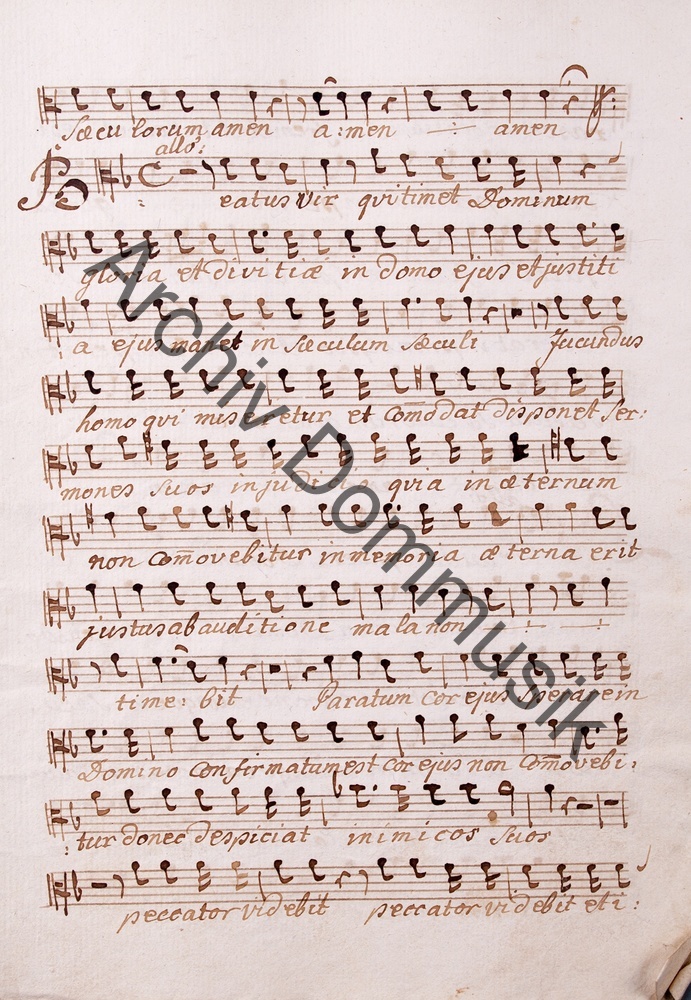 Sæcu lorum amen a: men amen
allo:
Beatus Vir qui timet Dominum
gloria et divitiæ in domo ejus et justiti
a ejus manet in sæculum sæculi Jucundus
homo qui miseretur et com̄odat disponet ser:
mones suos in judicio quia in æternum
non com̄ovebitur in memoria æ terna erit
justus ab auditione mala non
time: bit Paratum cor ejus sperare in
Domino Confirmatum est cor ejus non com̄ovebi:
tur donec despiciat inimicos suos
peccator videbit peccator videbit et i:
Archiv Dommusik